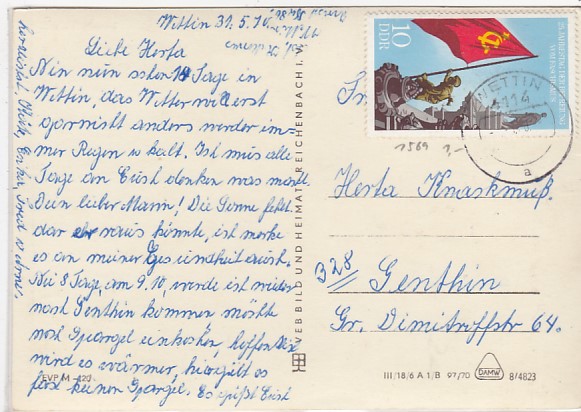 Wettin 31.5.70
Liebe Herta
Nin nun schon 14 Tage in
Wettin, das Wetter will erst
garnicht anders werden im-
mer Regen u kalt. Ich mus alle
Tage an Euch denken was macht
Dein lieber Mann! Die Sonne fehlt
dar er raus könnte, ich merke
es an meiner
8 Tage, am 9.10, werde ich wieder
nach Genthin kommen möchte
noch Spargel einkochen, hoffentlich
wird es wärmer, hier gibt es
fast keinen Spargel. Es grüßt Euch
herzlichst
VEB BILD UND HEIMAT REICHENBACH I. V.
EVP M -,20
10
DDR
WETTIN
a
1569
Herta Knaskmuß.
328
Genthin
Gr. Dimitroffstr 64.
III/18/6 A 1/B 97/70
DAMW
8/4823